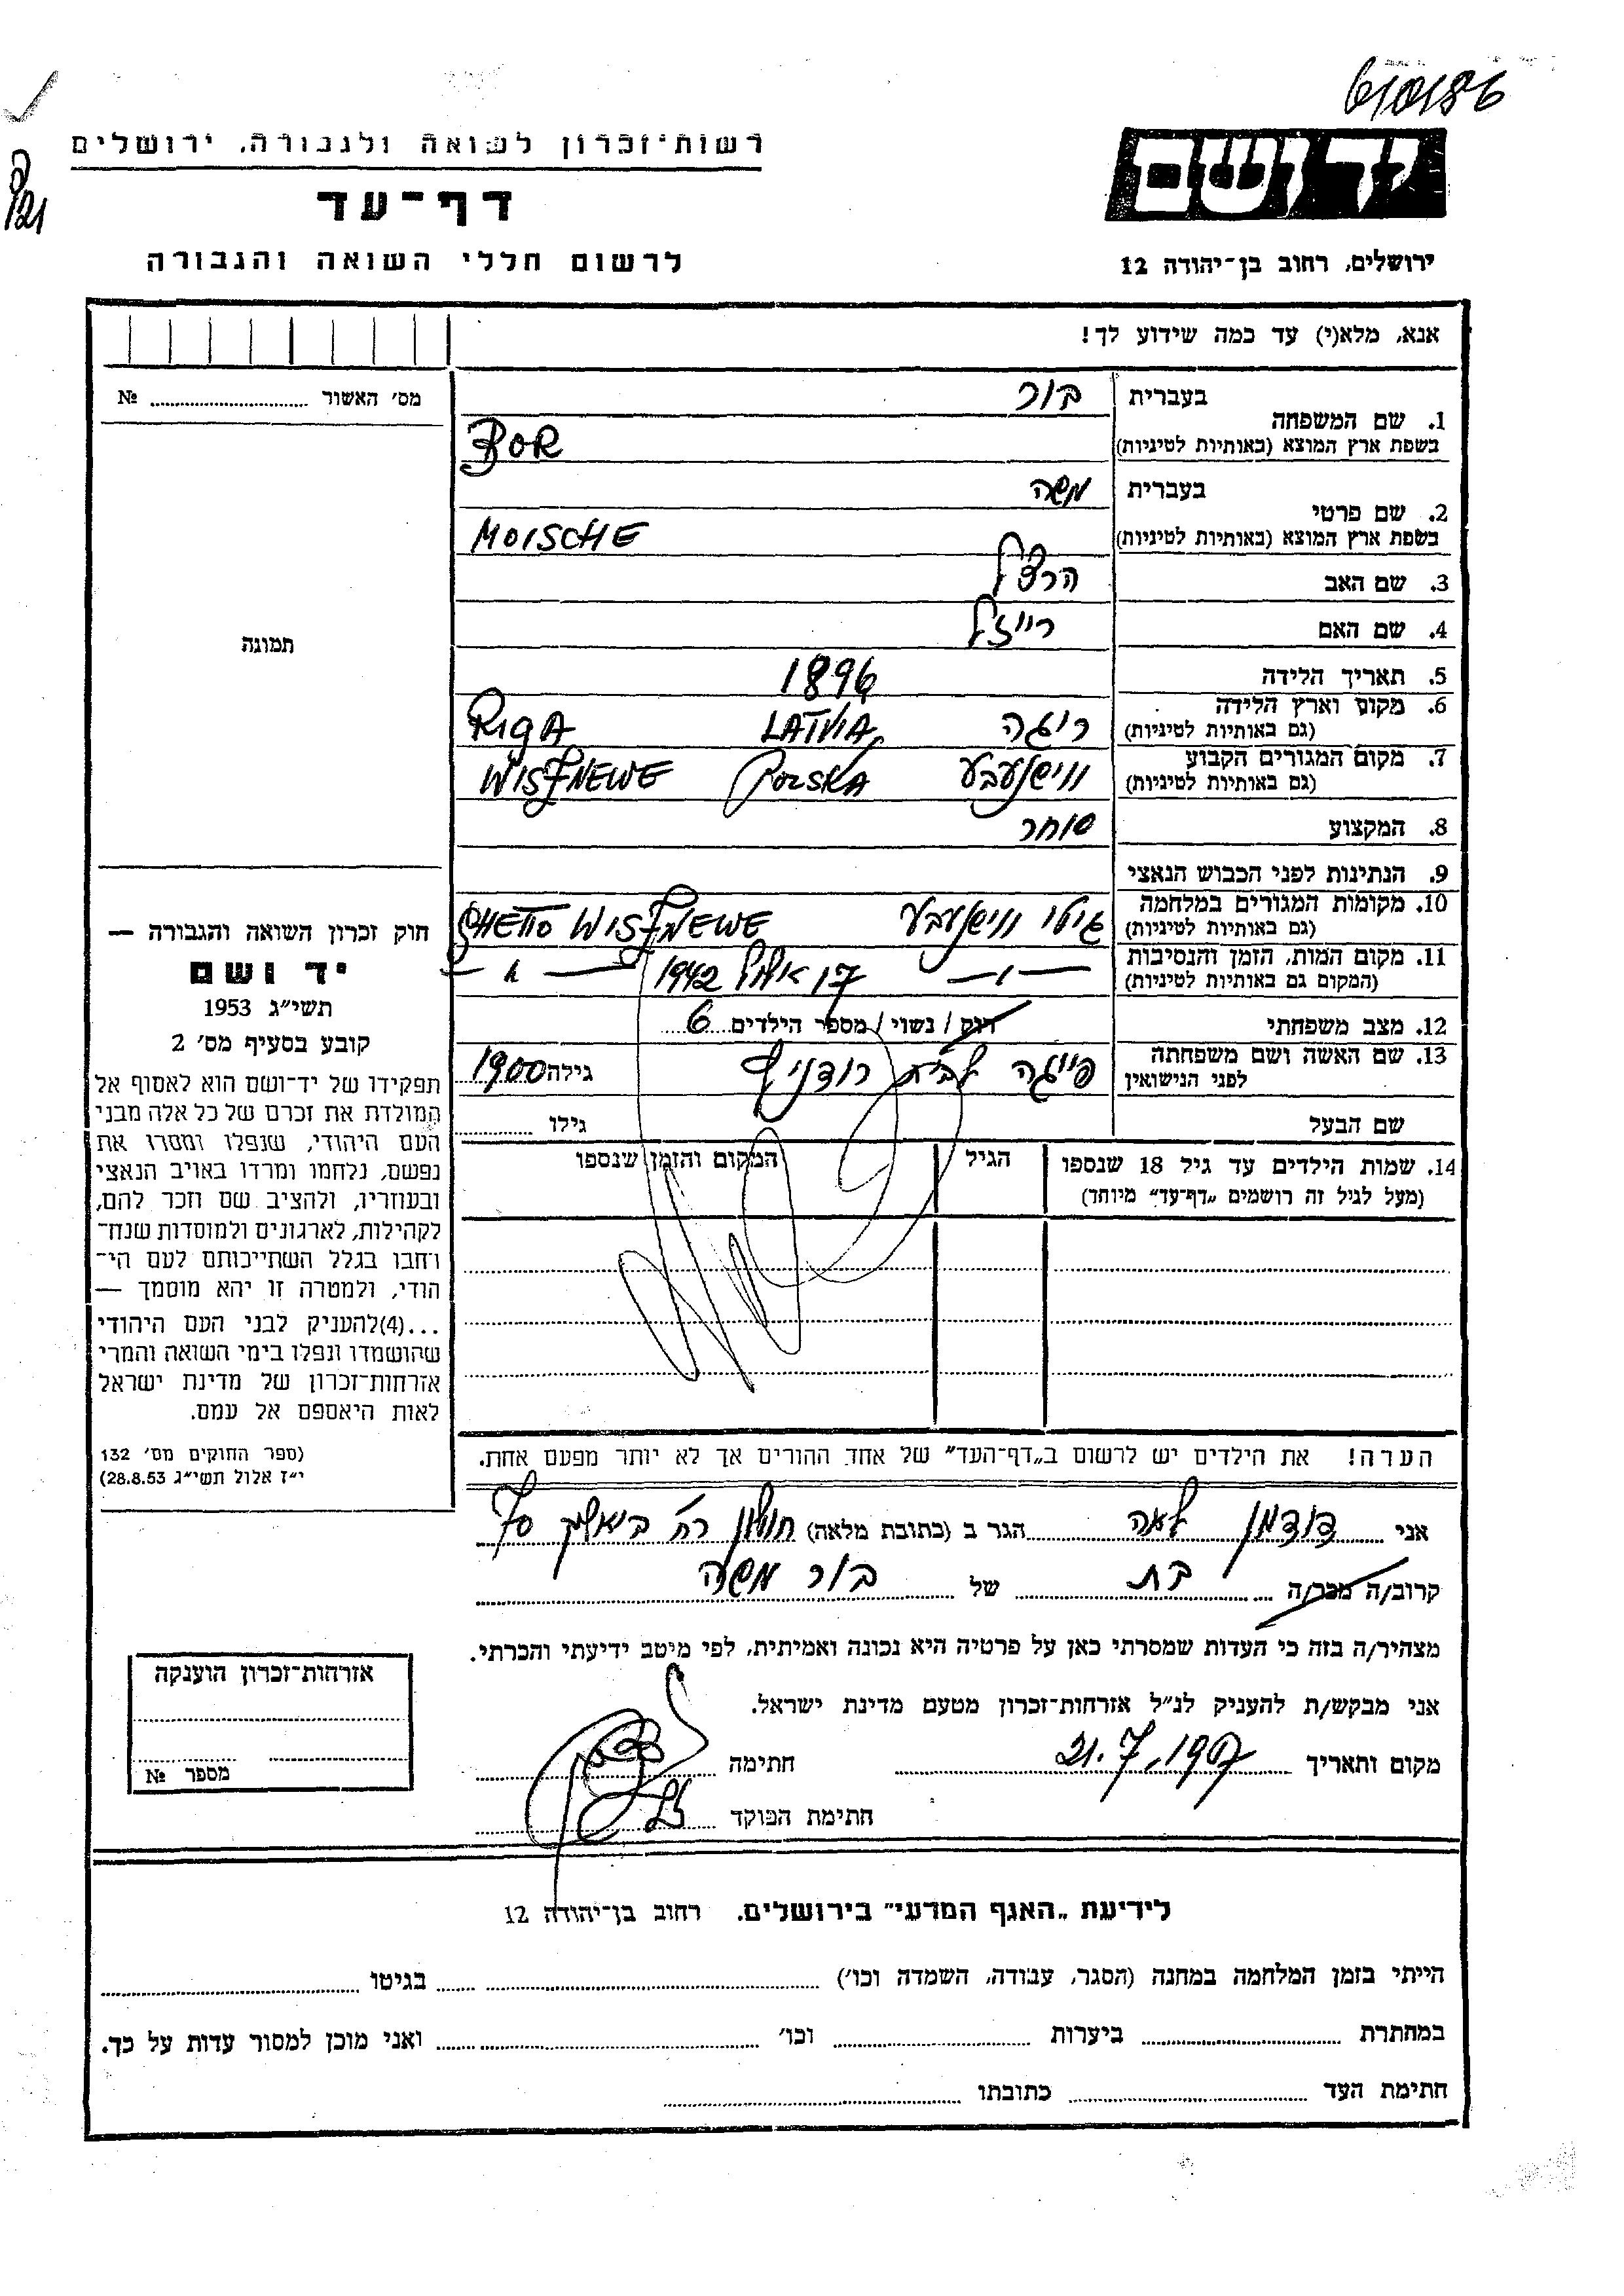 6/10/86
יד ושם
ירושלים, רחוב בן־יהודה 12
רשות־זכרון לשואה ולגבורה, ירושלים
דף־עד
לרשום חללי השואה והגבורה
אנא, מלא(י) עד כמה שידוע לך!
1. שם המשפחה
בעברית בור
בשפת ארץ המוצא (באותיות לטיניות) BOR
2. שם פרטי
בעברית משה
בשפת ארץ המוצא (באותיות לטיניות) MOISCHE
3. שם האב הרצל
4. שם האם רייזל
5. תאריך הלידה 1896
6. מקום וארץ הלידה ריגה LATVIA RIGA
(גם באותיות לטיניות)
7. מקום המגורים הקבוע ווישנעבע POLSKA WISZNEWE
(גם באותיות לטיניות)
8. המקצוע סוחר
9. הנתינות לפני הכבוש הנאצי
10. מקומות המגורים במלחמה גיטו ווישנעבע GHETTO WISZNEWE
(גם באותיות לטיניות)
11. מקום המות, הזמן והנסיבות — " — יז אלול 1942 — " —
(המקום גם באותיות לטיניות)
12. מצב משפחתי רווק / נשוי / מספר הילדים 6
13. שם האשה ושם משפחתה פייגה לבית רודניק גילה 1900
לפני הנישואין
שם הבעל גילו
14. שמות הילדים עד גיל 18 שנספו הגיל המקום והזמן שנספו
(מעל לגיל זה רושמים „דף־עד" מיוחד)
הערה! את הילדים יש לרשום ב„דף־העד" של אחד ההורים אך לא יותר מפעם אחת.
מס' האשור №
תמונה
חוק זכרון השואה והגבורה —
יד ושם
תשי״ג 1953
קובע בסעיף מס' 2
תפקידו של יד־ושם הוא לאסוף אל
המולדת את זכרם של כל אלה מבני
העם היהודי, שנפלו ומסרו את
נפשם, נלחמו ומרדו באויב הנאצי
ובעוזריו, ולהציב שם וזכר להם,
לקהילות, לארגונים ולמוסדות שנח־
רבו בגלל השתייכותם לעם הי־
הודי, ולמטרה זו יהא מוסמך —
...(4)להעניק לבני העם היהודי
שהושמדו ונפלו בימי השואה והמרי
אזרחות־זכרון של מדינת ישראל
לאות היאספם אל עמם.
(ספר החוקים מס' 132
י״ז אלול תשי״ג 28.8.53)
אני לאה הגר ב (כתובת מלאה) חולון רח' ביאליק
קרוב/ה מכר/ה בת של בור משה
מצהיר/ה בזה כי העדות שמסרתי כאן על פרטיה היא נכונה ואמיתית, לפי מיטב ידיעתי והכרתי.
אני מבקש/ת להעניק לנ״ל אזרחות־זכרון מטעם מדינת ישראל.
מקום ותאריך 21.7. חתימה
חתימת הפוקד
אזרחות־זכרון הוענקה
מספר №
לידיעת „האגף המדעי" בירושלים, רחוב בן־יהודה 12
הייתי בזמן המלחמה במחנה (הסגר, עבודה, השמדה וכו') בגיטו
במחתרת ביערות וכו' ואני מוכן למסור עדות על כך.
חתימת העד כתובתו